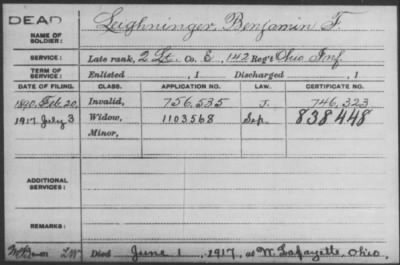 DEAD
NAME OF SOLDIER: Leighninger, Benjamin F.
SERVICE: Late rank, 2 Lt. Co. E, 142 Reg't Ohio Inf.
TERM OF SERVICE: Enlisted , 1 Discharged , 1
DATE OF FILING. CLASS. APPLICATION NO. LAW. CERTIFICATE NO.
1890, Feb. 20, Invalid, 756,535 J. 746,323
1917 July 3 Widow, 1103568 838448
Minor,
ADDITIONAL SERVICES:
REMARKS:
Died June 1, 1917, at W. Lafayette, Ohio.